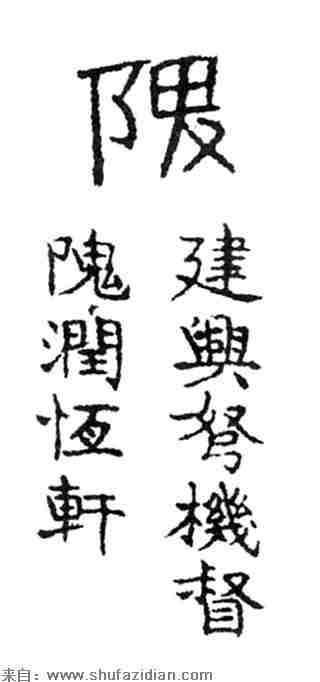 建興弩機督
隗潤恆軒
来自：www.shufazidian.com